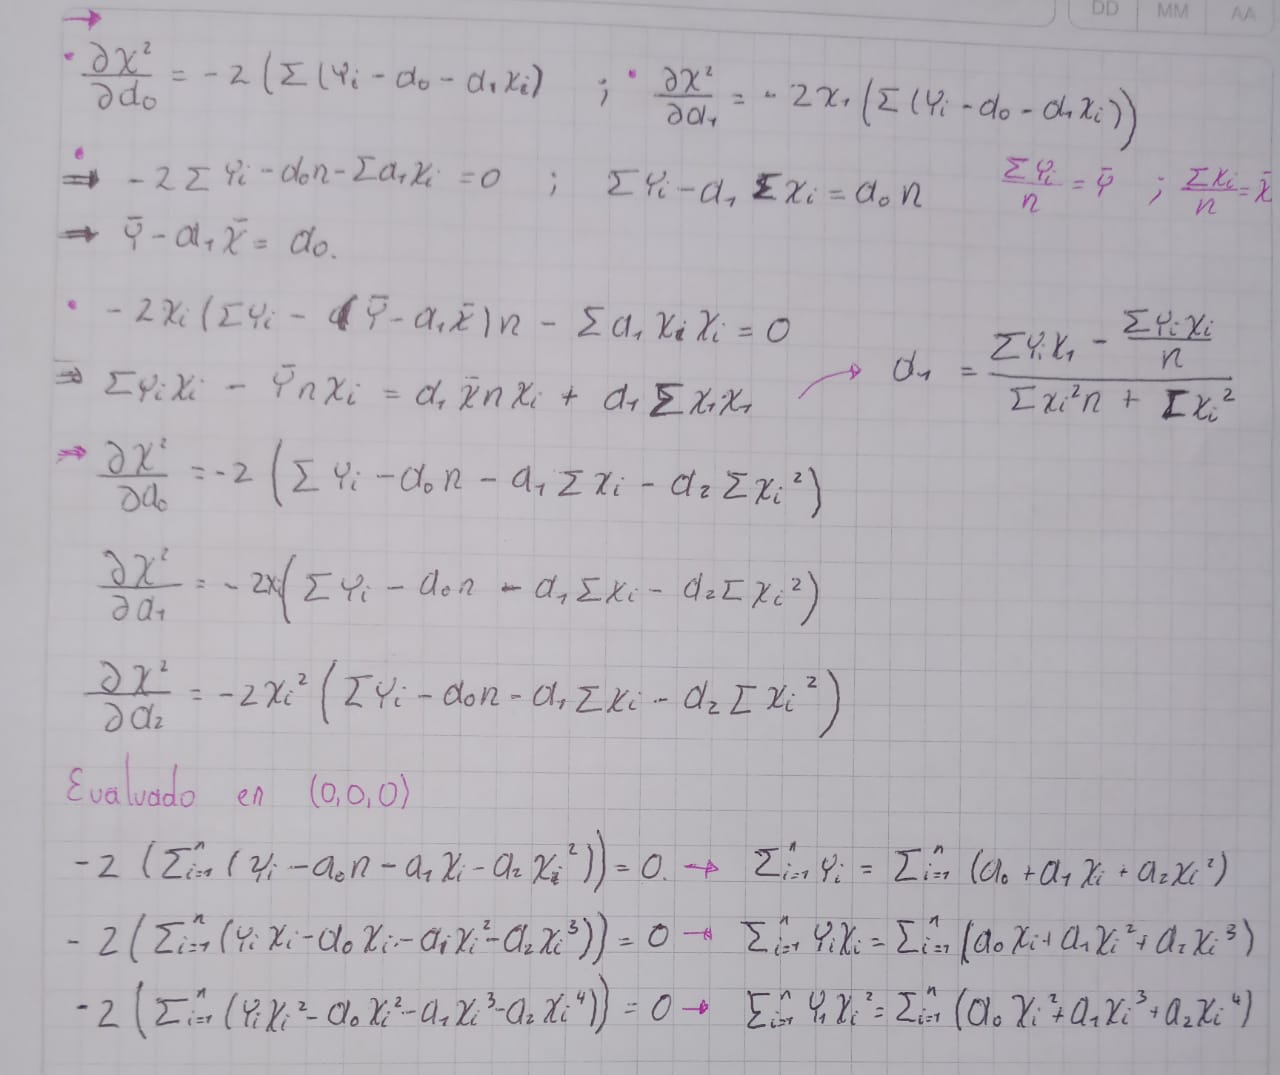 DD MM AA
→
• ∂χ²/∂a₀ = -2 (Σ (Yᵢ - a₀ - a₁xᵢ) ; • ∂χ²/∂a₁ = -2x₁ (Σ (Yᵢ - a₀ - a₁xᵢ))
⇒ -2Σ Yᵢ - a₀n - Σa₁xᵢ = 0 ; ΣYᵢ - a₁ Σxᵢ = a₀n ΣYᵢ/n = Ȳ ; Σxᵢ/n = x̄
⇒ Ȳ - a₁x̄ = a₀.
• -2xᵢ (ΣYᵢ - (Ȳ - a₁x̄)n - Σa₁xᵢxᵢ = 0
⇒ ΣYᵢxᵢ - Ȳnxᵢ = a₁x̄nxᵢ + a₁Σx₁x₁ → a₁ = (ΣYᵢx₁ - ΣYᵢxᵢ/n)/(Σxᵢ²n + Σxᵢ²)
⇒ ∂χ²/∂a₀ = -2 (ΣYᵢ - a₀n - a₁Σxᵢ - a₂Σxᵢ²)
∂χ²/∂a₁ = -2xᵢ(ΣYᵢ - a₀n - a₁Σxᵢ - a₂Σxᵢ²)
∂χ²/∂a₂ = -2xᵢ² (ΣYᵢ - a₀n - a₁Σxᵢ - a₂Σxᵢ²)
Evaluado en (0,0,0)
-2 (Σᵢ₌₁ⁿ (Yᵢ - a₀n - a₁xᵢ - a₂xᵢ²)) = 0. → Σᵢ₌₁ⁿ Yᵢ = Σᵢ₌₁ⁿ (a₀ + a₁xᵢ + a₂xᵢ²)
-2 (Σᵢ₌₁ⁿ (Yᵢxᵢ - a₀xᵢ - a₁xᵢ² - a₂xᵢ³)) = 0 → Σᵢ₌₁ⁿ Yᵢxᵢ = Σᵢ₌₁ⁿ (a₀xᵢ + a₁xᵢ² + a₂xᵢ³)
-2 (Σᵢ₌₁ⁿ (Yᵢxᵢ² - a₀xᵢ² - a₁xᵢ³ - a₂xᵢ⁴)) = 0 → Σᵢ₌₁ⁿ Y₁xᵢ² = Σᵢ₌₁ⁿ (a₀xᵢ² + a₁xᵢ³ + a₂xᵢ⁴)